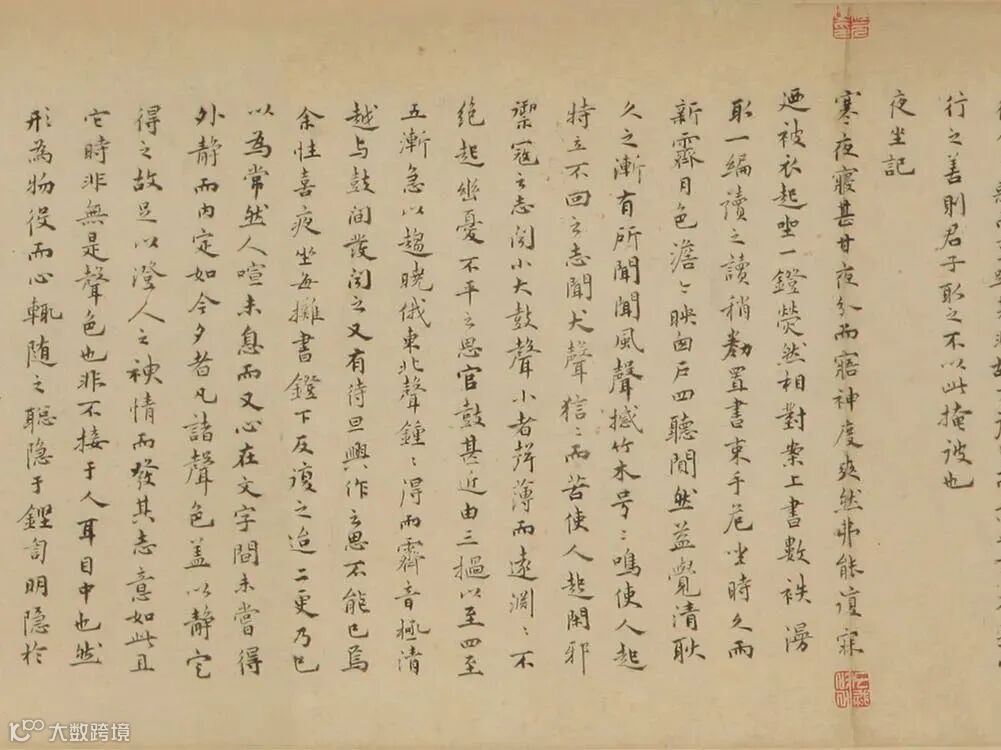 行之善則君子取之不以此掩彼也
夜坐記
寒夜寢甚甘夜分而寤神度爽然弗能復寐
迺被衣起坐一鐙熒然相對案上書數袟漫
取一編讀之讀稍勌置書束手危坐時久雨
新霽月色澹〻映囱戶四聽閴然益覺清耿
久之漸有所聞聞風聲撼竹木号〻鳴使人起
特立不回之志聞犬聲狺〻而苦使人起閑邪
禦寇之志聞小大鼓聲小者聲薄而遠淵〻不
絶起幽憂不平之思官鼓甚近由三撾以至四至
五漸急以趨曉俄東北聲鍾〻得雨霽音極清
越与鼓間發聞之又有待旦興作之思不能已焉
余性喜夜坐每攤書鐙下反復之迨二更乃已
以為常然人喧未息而又心在文字間未嘗得
外靜而內定如今夕者凡諸聲色盖以靜定
得之故足以澄人之神情而發其志意如此且
它時非無是聲色也非不接于人耳目中也然
形為物役而心輒随之聰隐于鏗訇明隐於
大数跨境